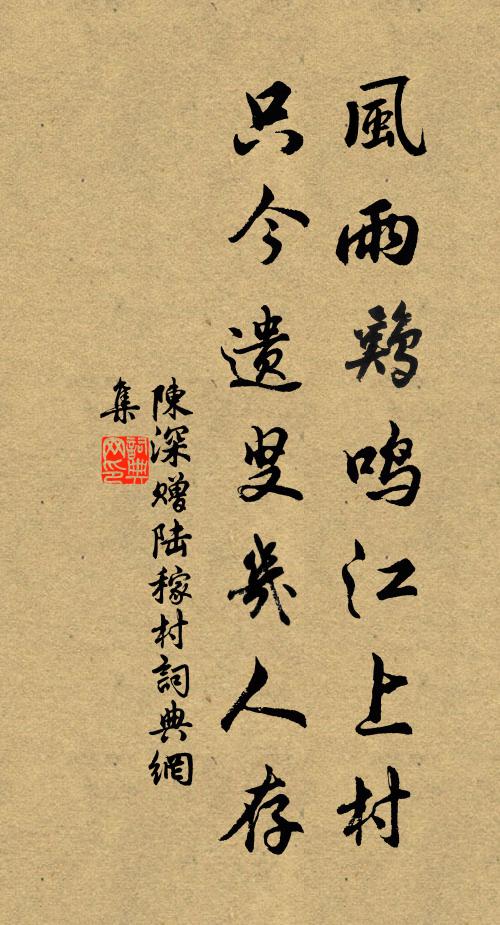 風雨鷄鳴江上村
只今遺叟幾人存
陳深贈陆稼村詞典網
集
詞典
网印